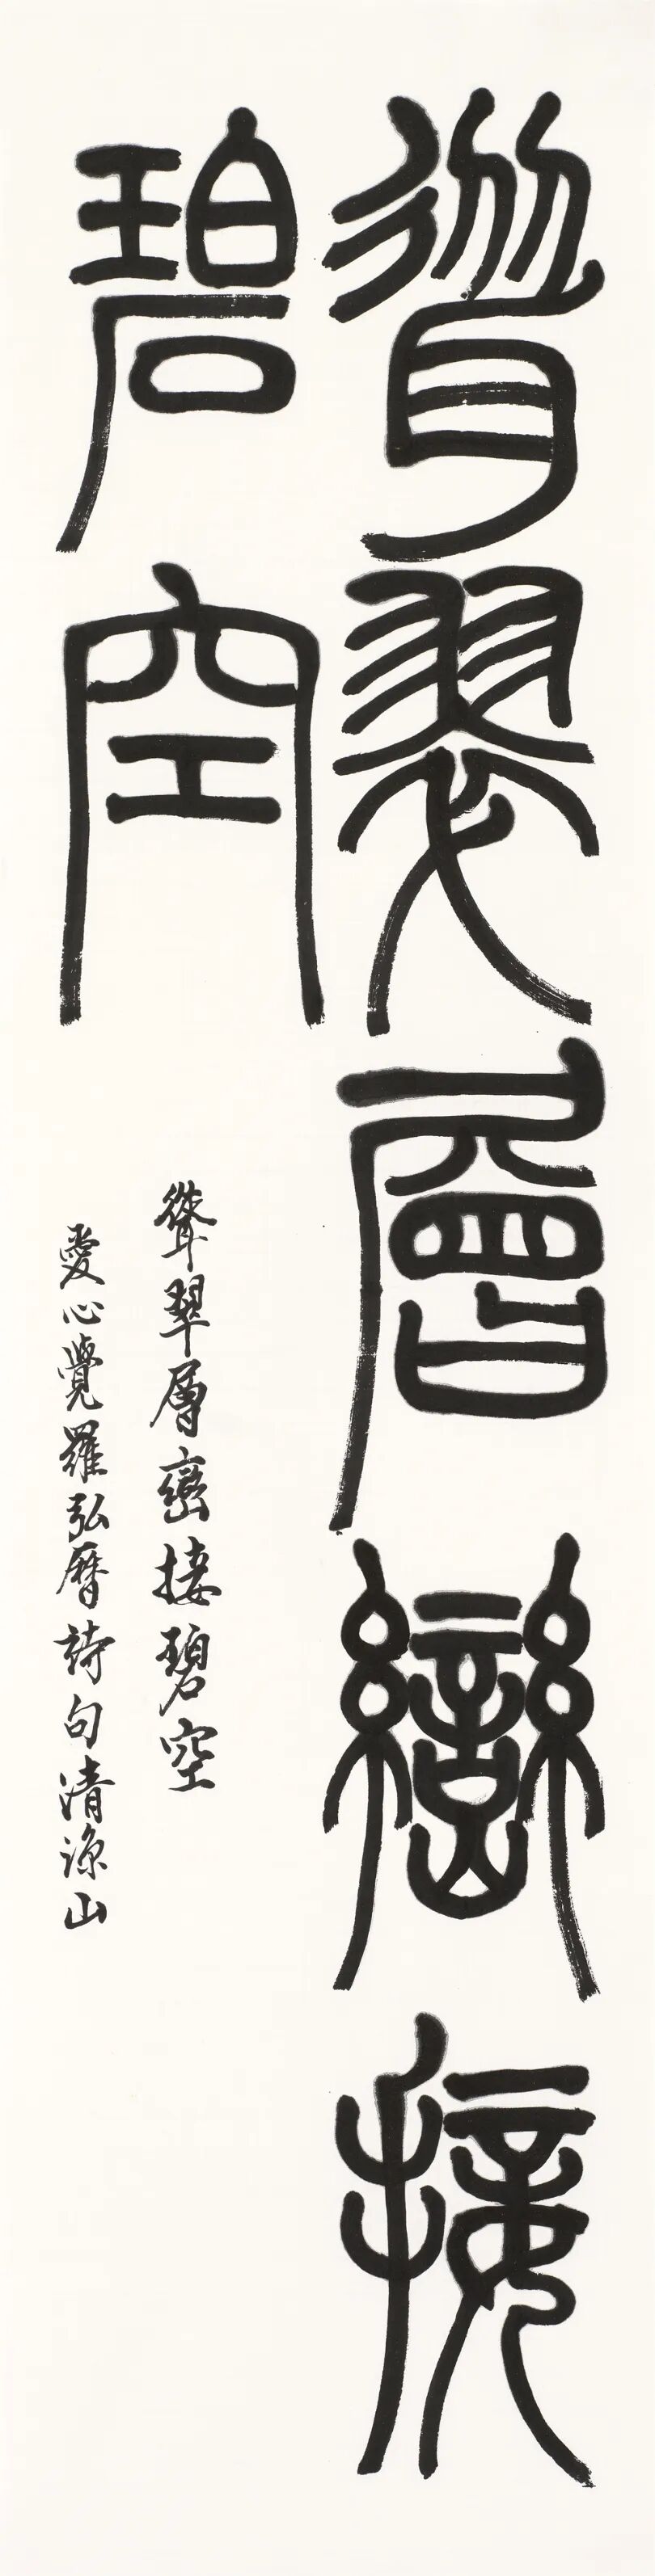 聳翠層巒接
碧空
聳翠層巒接碧空
愛心覺羅弘曆詩句清涼山